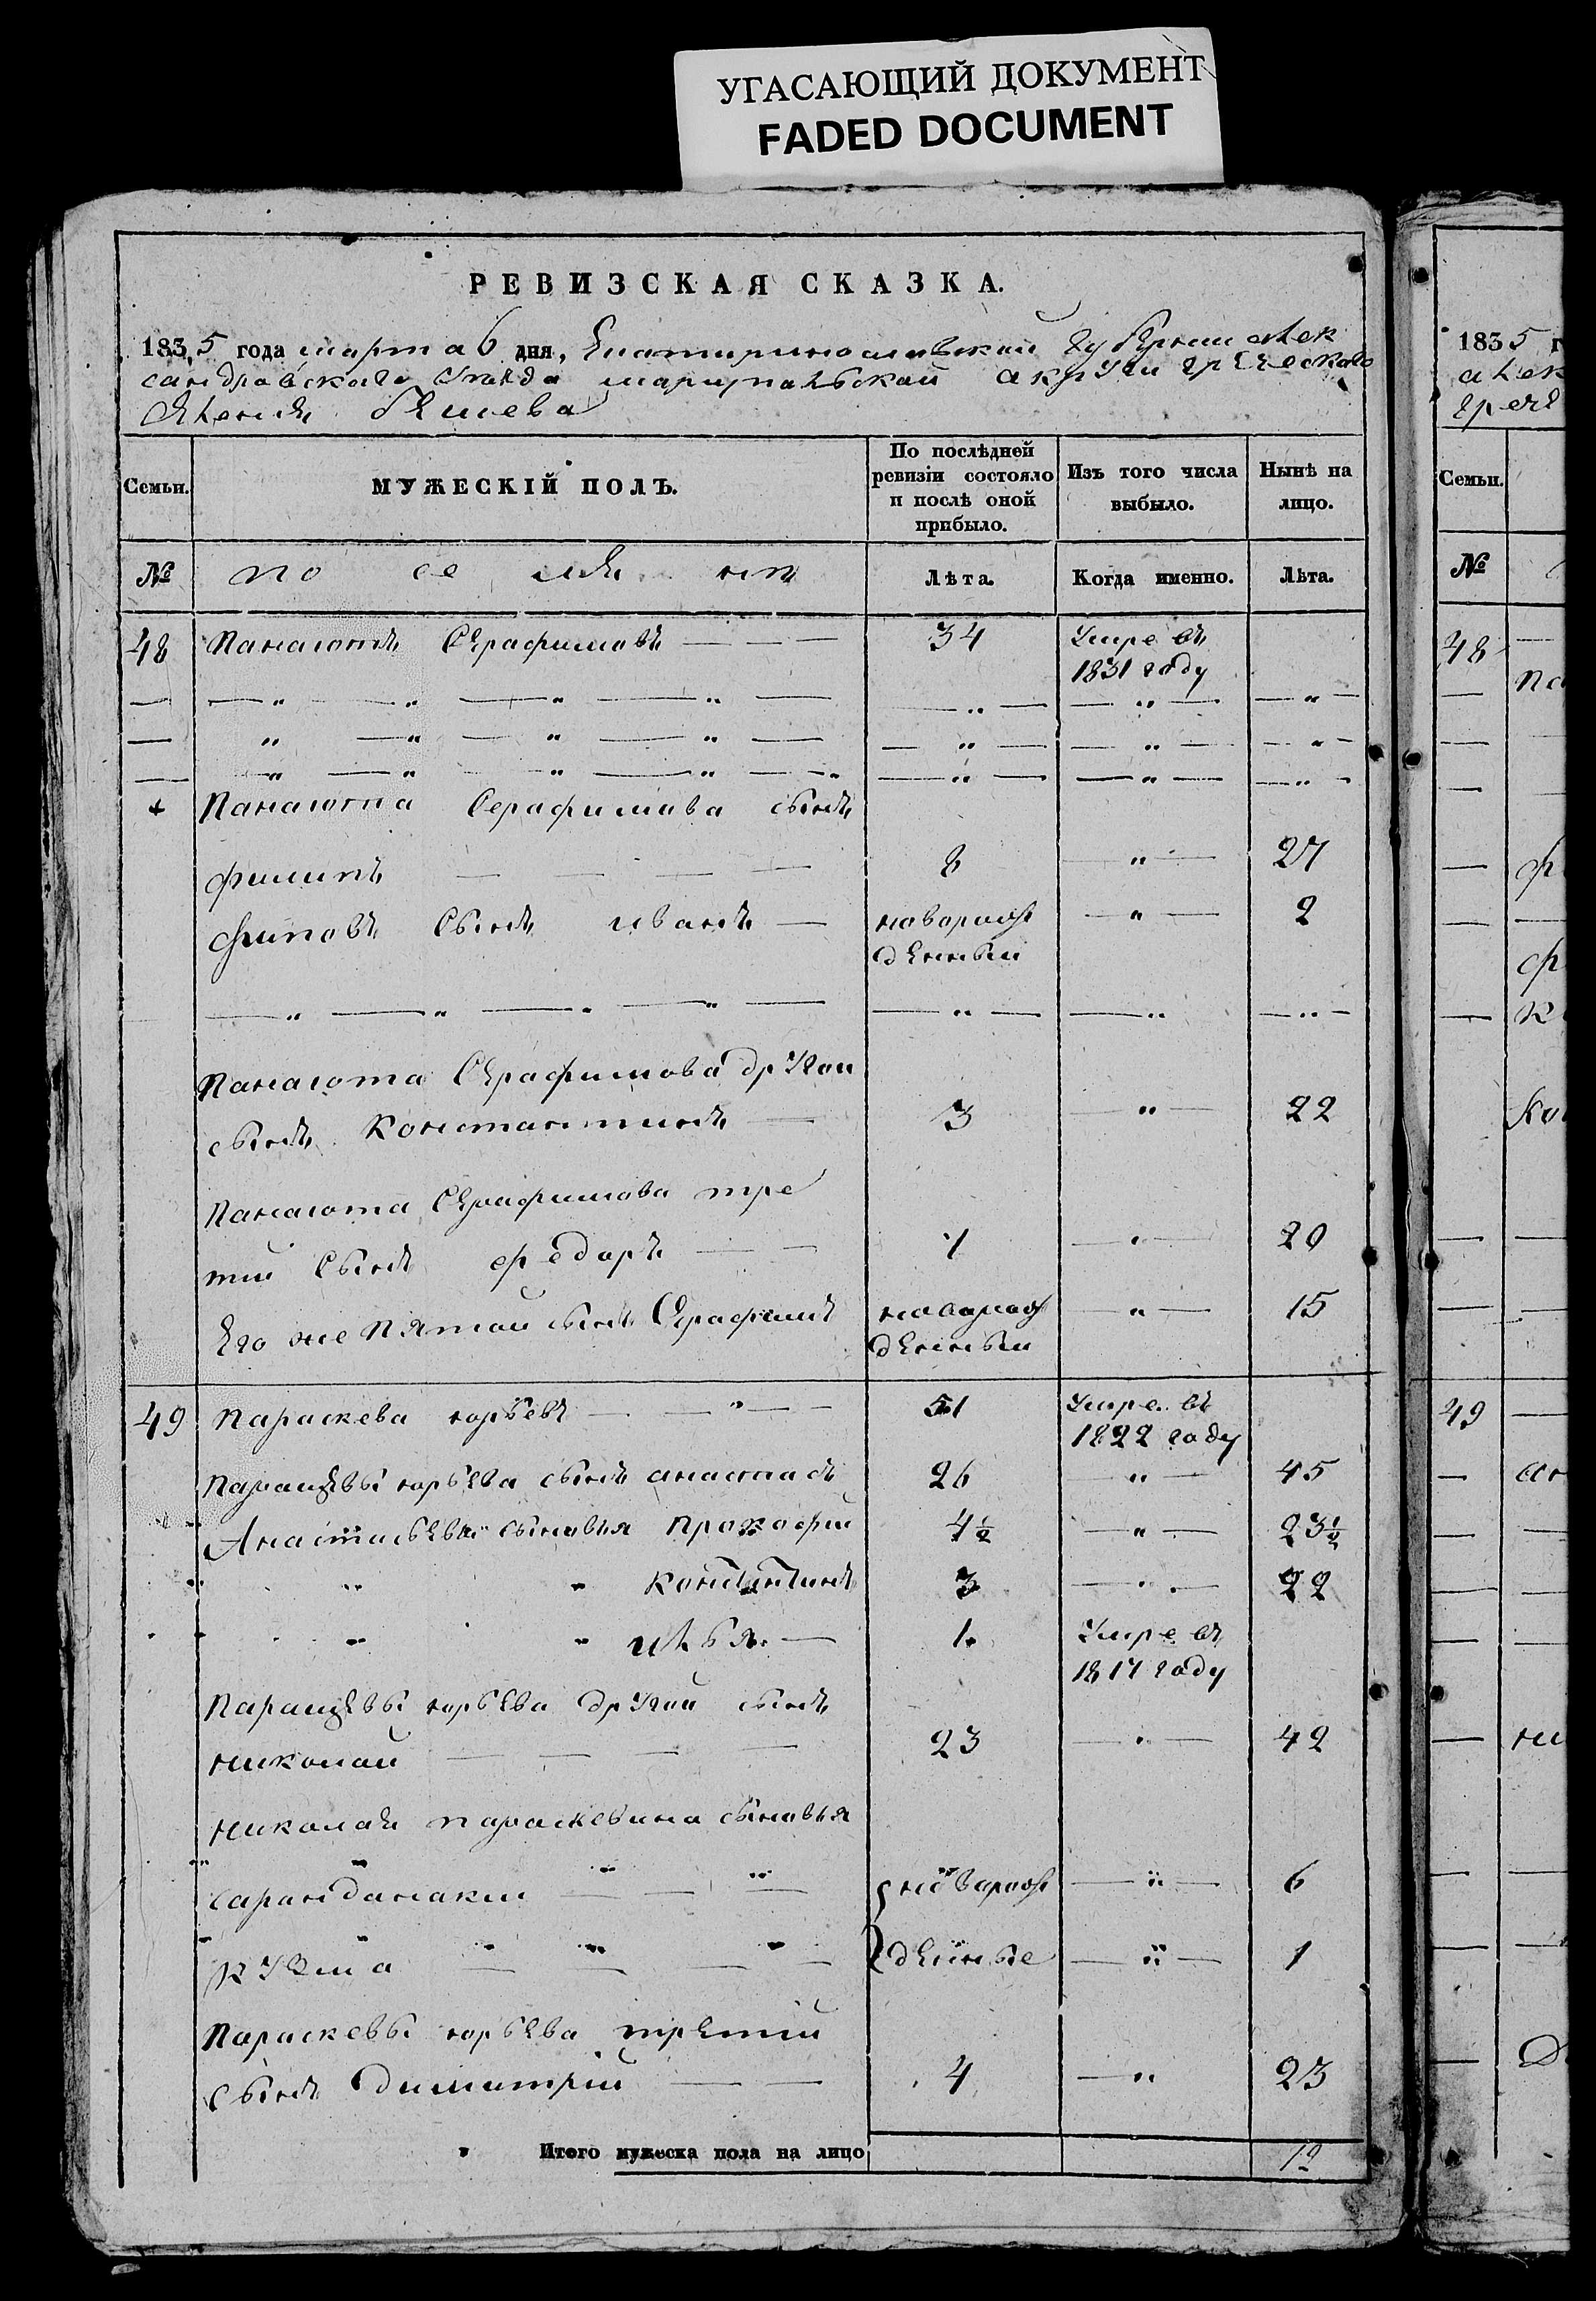 УГАСАЮЩИЙ ДОКУМЕНТ
FADED DOCUMENT
РЕВИЗСКАЯ СКАЗКА.
1835 года марта 6 дня, Екатиринославской губернии Алек
сандравскаго уѣзда мариупальской акруги греческаго
селения Бешева
Семьи.
МУЖЕСКІЙ ПОЛЪ.
По послѣдней ревизіи состояло и послѣ оной прибыло.
Изъ того числа выбыло.
Нынѣ на лицо.
№
Лѣта.
Когда именно.
Лѣта.
48 Панагиотъ Серафимовъ 34 Умре въ
1831 году
Панагиота Серафимова сынъ
Филипъ 8 " 27
Филиповъ сынъ иванъ наварож 2
денныи
Панагиота Серафимова другои
сынъ Константинъ 3 " 22
Панагиота Серафимова тре
тии сынъ федаръ 1 " 20
Его же пятои сынъ Серафимъ наварож " 15
денныи
49 Параскева юрьевъ 51 Умре въ
1822 году
Параскевы юрьева сынъ анастасъ 26 " 45
Анастасьевы сыновья Прокофии 4½ " 23½
Константинъ 3 22
илья 1 Умре въ
1817 году
Параскевы юрьева другой сынъ
николай 23 42
николая параскевина сыновья
саранданакии новарож 6
кузма денные 1
Параскевы юрьева третій
сынъ димитрій 4 23
Итого мужеска пола на лицо 12
1835 г
алек
грече
Семьи.
№
48
49